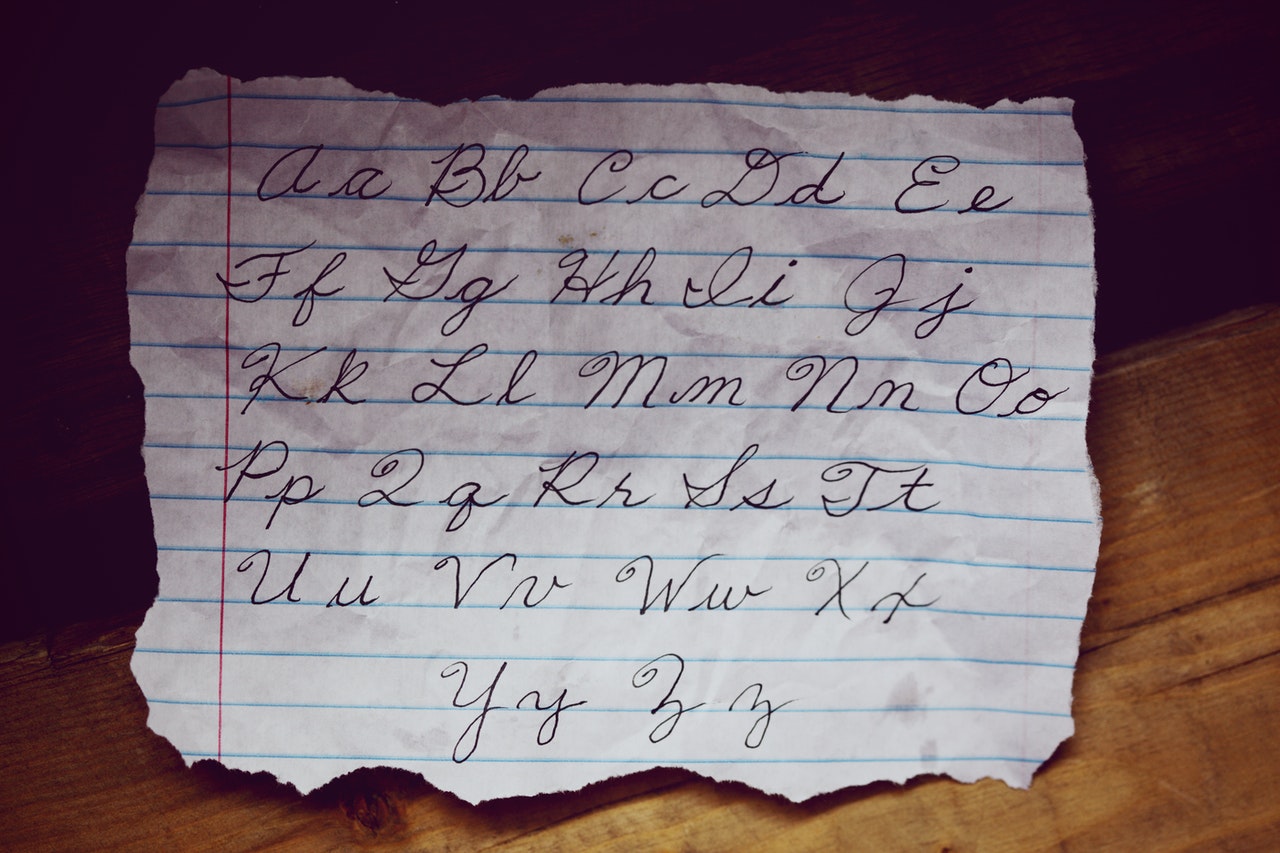 Aa Bb Cc Dd Ee
Ff Gg Hh Ii Jj
Kk Ll Mm Nn Oo
Pp Qq Rr Ss Tt
Uu Vv Ww Xx
Yy Zz